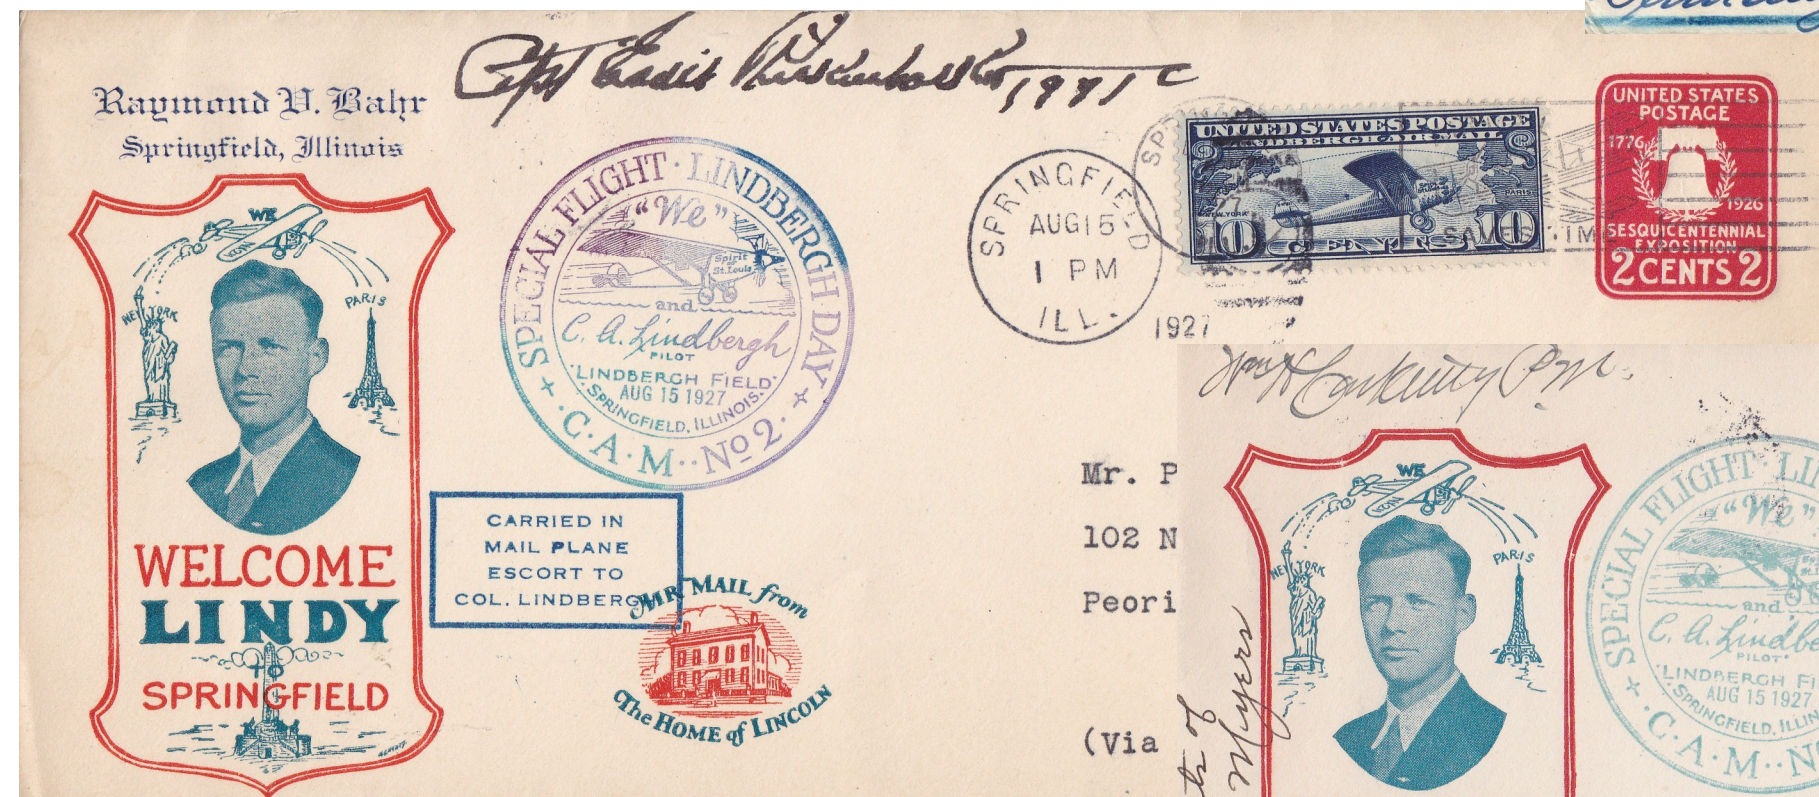 Capt Eddie Rickenbacker 1971
Raymond V. Bahr
Springfield, Illinois
WE
NEW YORK
PARIS
WELCOME
LINDY
TO
SPRINGFIELD
SPECIAL FLIGHT · LINDBERGH DAY
"We"
Spirit of St. Louis
and
C. A. Lindbergh
PILOT
LINDBERGH FIELD
AUG 15 1927
SPRINGFIELD, ILLINOIS.
C·A·M··No 2·
CARRIED IN
MAIL PLANE
ESCORT TO
COL. LINDBERGH
AIR MAIL from
The HOME of LINCOLN
SPRINGFIELD
AUG 15
1 PM
ILL.
1927
UNITED STATES POSTAGE
LINDBERGH AIR MAIL
NEW YORK
PARIS
10 CENTS 10
UNITED STATES
POSTAGE
1776
1926
SESQUICENTENNIAL
EXPOSITION
2 CENTS 2
SAVES TIME
Mr. P
102 N
Peori
(Via
P.M.
WE
NEW YORK
PARIS
Myers
SPECIAL FLIGHT · LI
"We"
and
C. A. Lindbe
PILOT
LINDBERGH FI
AUG 15 1927
SPRINGFIELD, ILLIN
C·A·M··N